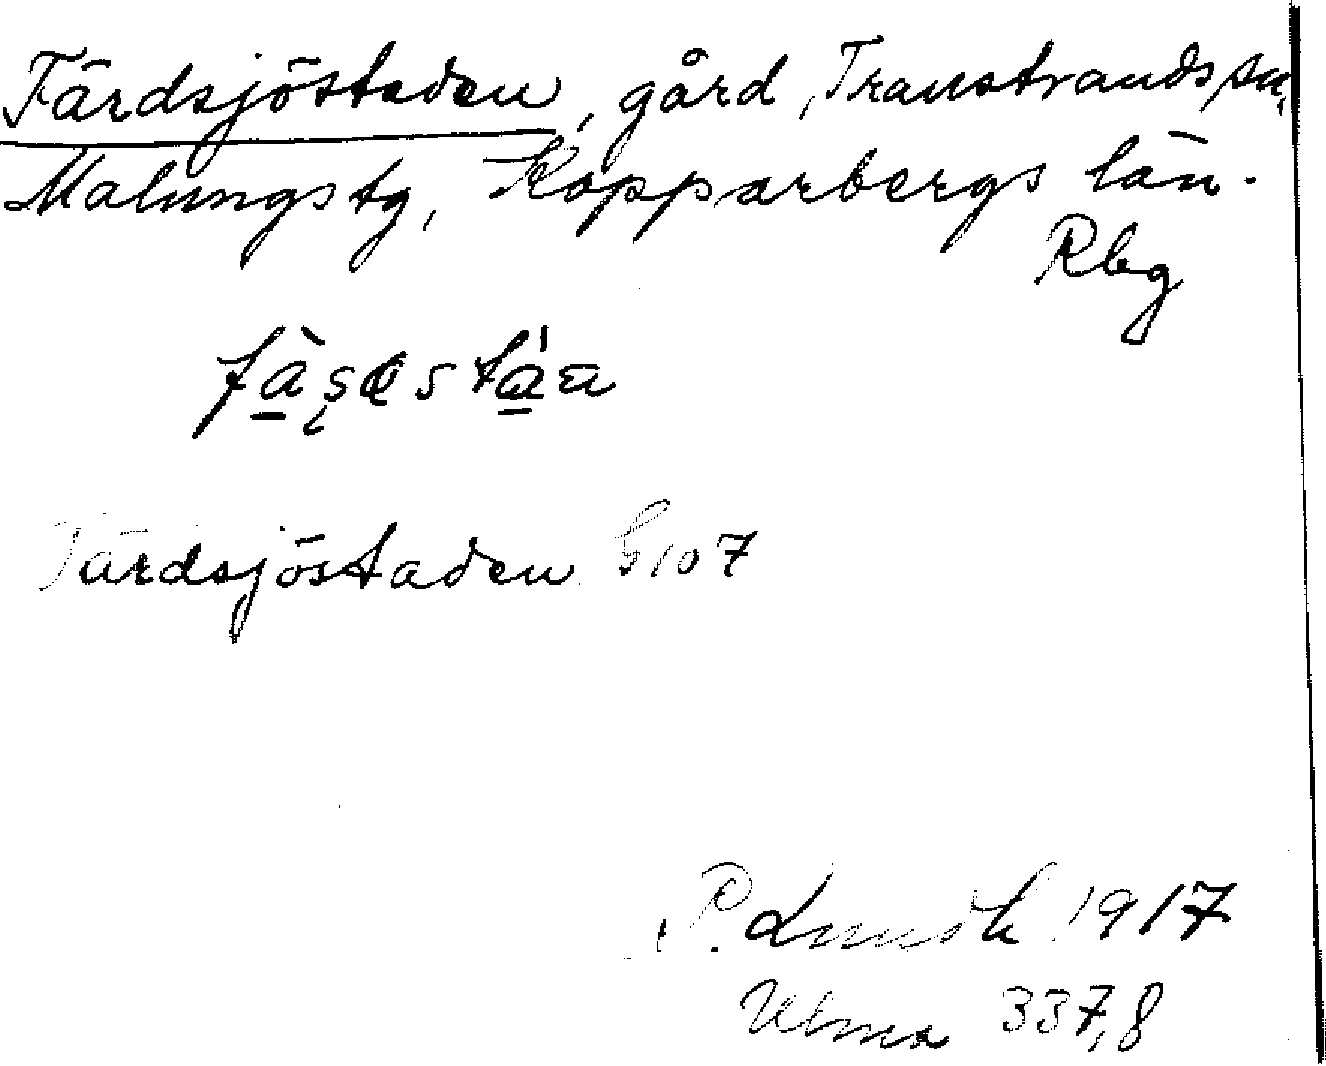 Färdsjöstaden, gård, Transtrands sn,
Malungs tg, Kopparbergs län.
Rbg
Färdsjöstaden G107
P. Linsth 1917
Ulma 337,8